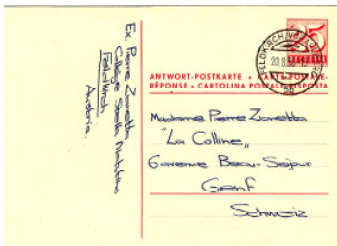 Ex. Pierre Zanetta
Collège Stella Matutina
Feldkirch
Austria
25
FELDKIRCH
20.8.
ANTWORT-POSTKARTE • CARTE POSTALE-
RÉPONSE • CARTOLINA POSTALE RISPOSTA
Madame Pierre Zanetta
"La Colline"
6 avenue Beau-Sejour
Genf
Schweiz